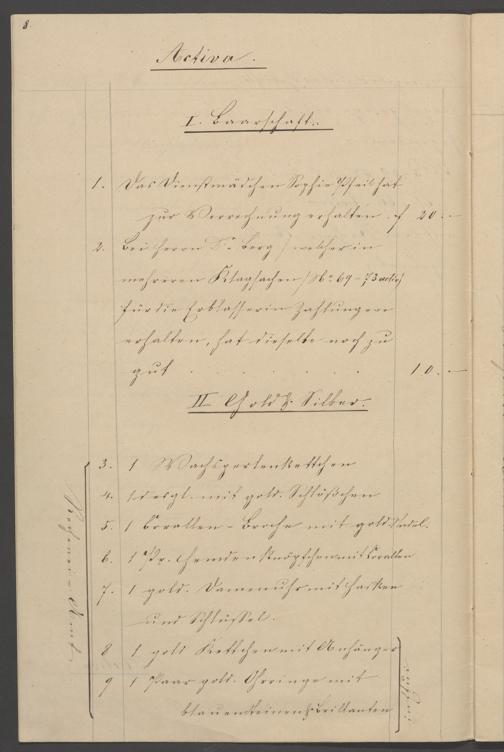 8.
Activa.
I. Baarschaft.
1. Das Dienstmädchen Sophie Pfeil hat
zur Verrechnung erhalten f 20.—
2. Bei Herrn Dr. Berg / welcher in
mehreren Klagsachen / No. 69–73 activ /
für die Erblasserin Zahlungen
erhalten, hat dieselbe noch zu
gut . . . . . . 10.—
II Gold & Silber.
3. 1 Wachsperlenkettchen
4. 1 desgl. mit gold. Schlößchen
5. 1 Corallen-Broche mit gold. Nadel.
6. 1 Pr. Hemdenknöpfchen mit Corallen
7. 1 gold. Damenuhr mit Haken
und Schlüssel.
8 1 gold Kettchen mit Anhänger
9 1 Paar gold. Ohrringe mit
blauen Steinen & Brillanten